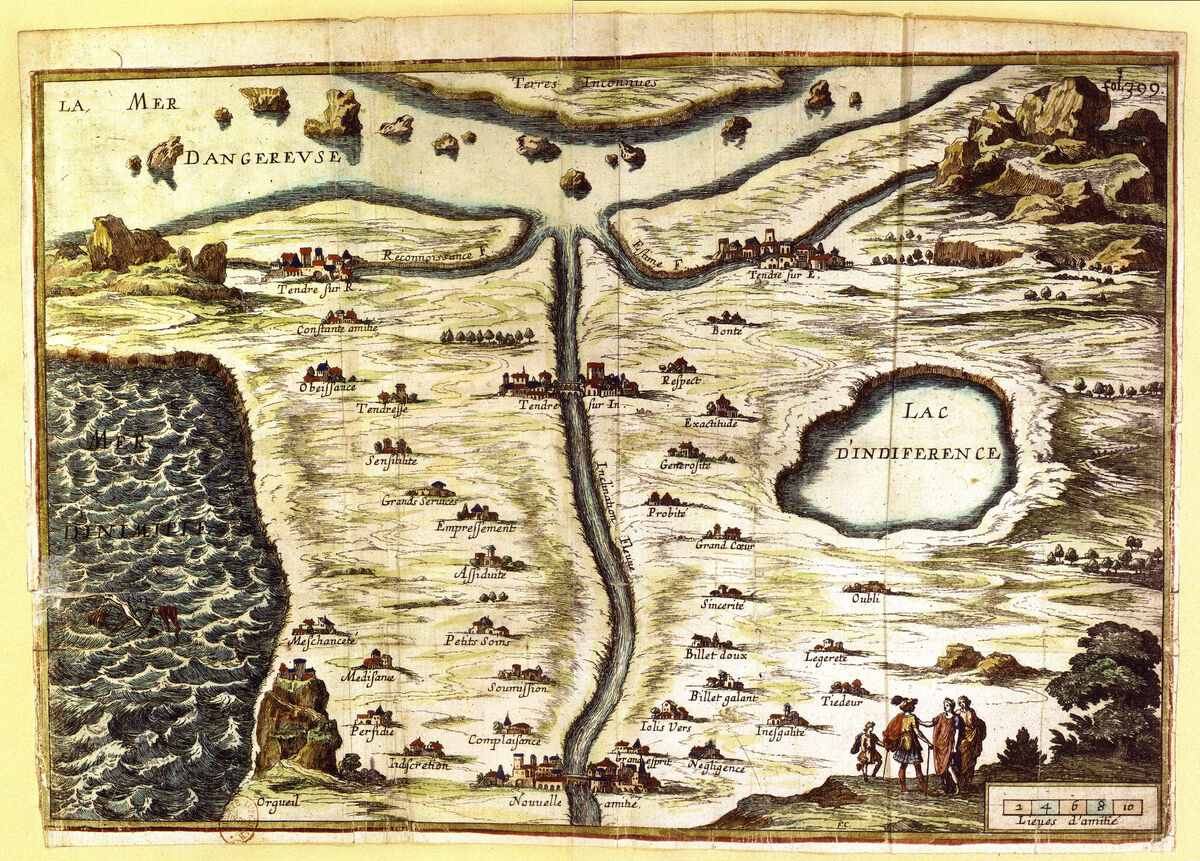 Terres Inconnues
fol. 399.
LA, MER
DANGEREVSE
Reconnoissance F.
Estime F.
Tendre sur R.
Tendre sur E.
Constante amitié
Bonté
Obeissance
Respect
Tendresse
Tendre sur In.
Exactitude
LAC
D'INDIFERENCE
MER
D'INIMITIE
Sensibilité
Generosité
Grands Services
Probité
Inclination Fleuve
Empressement
Grand Cœur
Assiduité
Sincerité
Oubli
Meschanceté
Petits Soins
Billet doux
Legereté
Medisance
Soumission
Billet galant
Tiedeur
Perfidie
Complaisance
Iolis Vers
Inesgalité
Indiscretion
Grand esprit
Negligence
Orgueil
Nouuelle amitié.
2 4 6 8 10
Lieues d'amitié